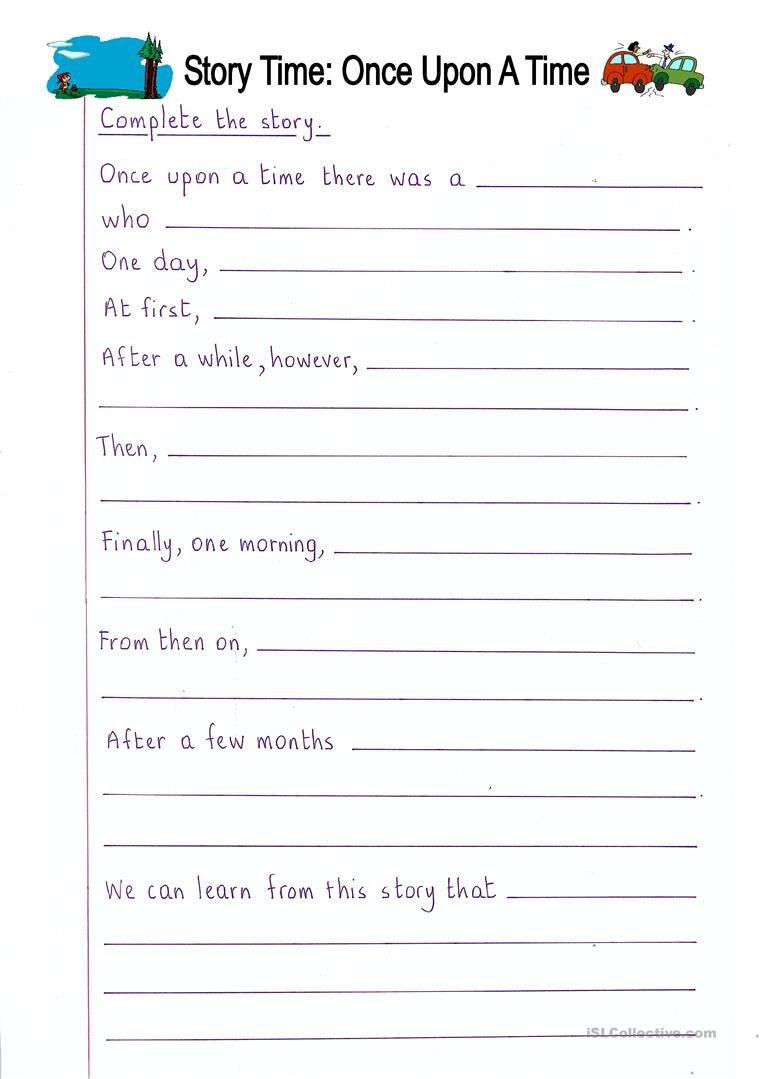 Story Time: Once Upon A Time
Complete the story.
Once upon a time there was a
who .
One day, .
At first, .
After a while, however,
.
Then,
.
Finally, one morning,
.
From then on,
.
After a few months
.
We can learn from this story that
iSLCollective.com
.